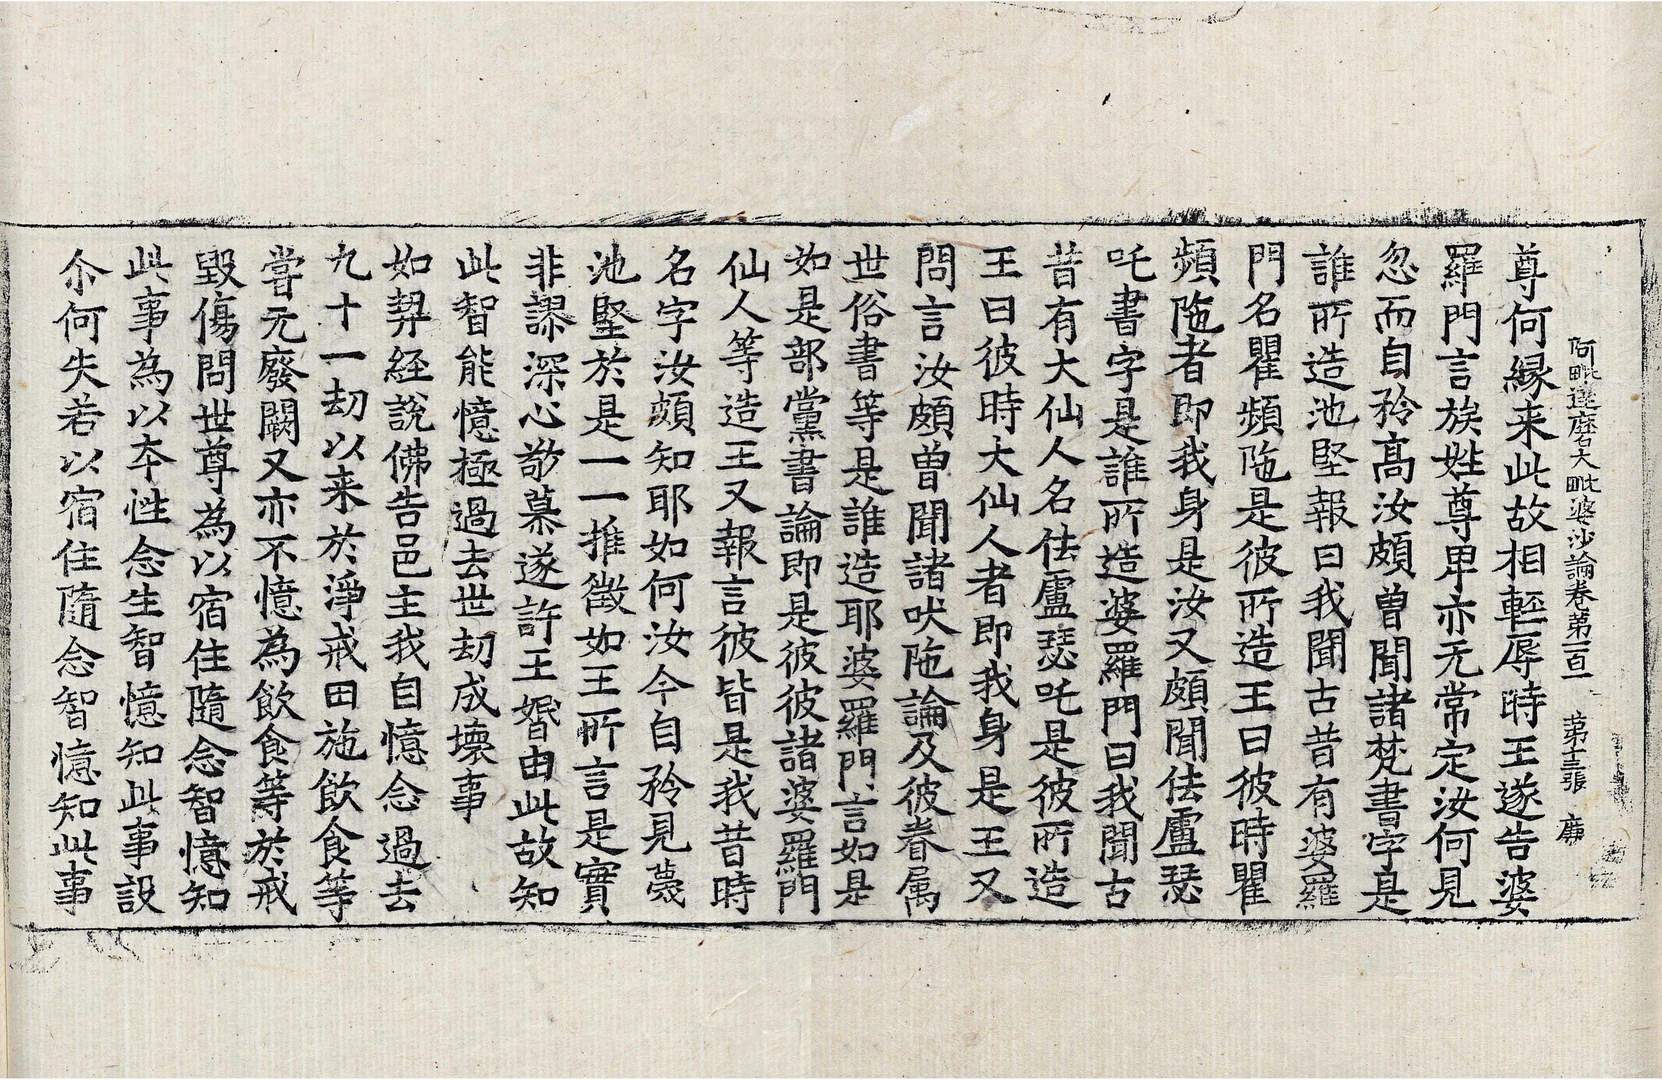 阿毗達磨大毗婆沙論卷第一百一　第十三張　廉
尊何縁来此故相輕辱時王遂告婆
羅門言族姓尊卑亦无常定汝何見
忽而自矜髙汝頗曾聞諸梵書字是
誰所造池堅報曰我聞古昔有婆羅
門名瞿頻陁是彼所造王曰彼時瞿
頻陁者即我身是汝又頗聞佉盧瑟
吒書字是誰所造婆羅門曰我聞古
昔有大仙人名佉盧瑟吒是彼所造
王曰彼時大仙人者即我身是王又
問言汝頗曾聞諸吠陁論及彼眷属
世俗書等是誰造耶婆羅門言如是
如是部黨書論即是彼彼諸婆羅門
仙人等造王又報言彼皆是我昔時
名字汝頗知耶如何汝今自矜見薎
池堅於是一一推徵如王所言是實
非謬深心敬慕遂許王婚由此故知
此智能憶極過去世劫成壞事
如契經說佛告邑主我自憶念過去
九十一劫以来於淨戒田施飲食等
甞无廢闕又亦不憶為飲食等於戒
毀傷問世尊為以宿住隨念智憶知
此事為以本性念生智憶知此事設
尒何失若以宿住隨念智憶知此事